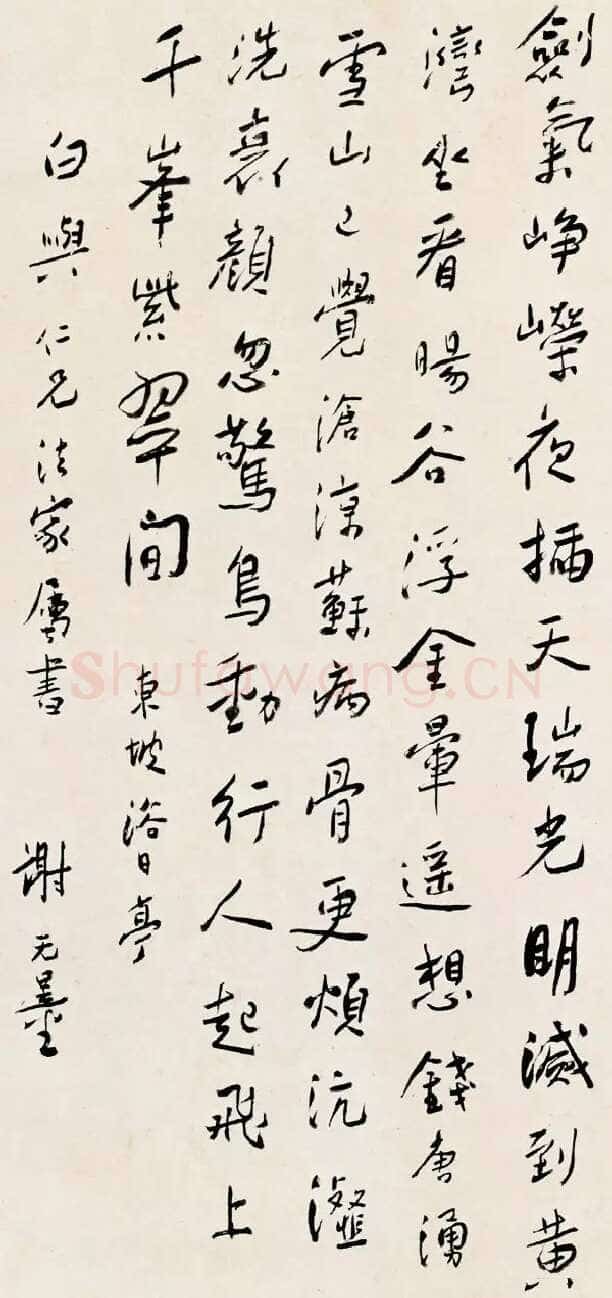 劍氣崢嶸夜插天瑞光明滅到黃
灣坐看暘谷浮金暈遥想錢唐湧
雪山已覺滄涼蘇病骨更煩沆瀣
洗衰顏忽驚鳥動行人起飛上
千峯紫翠間 東坡浴日亭
白與仁兄法家屬書 謝无量
Shufawang.CN